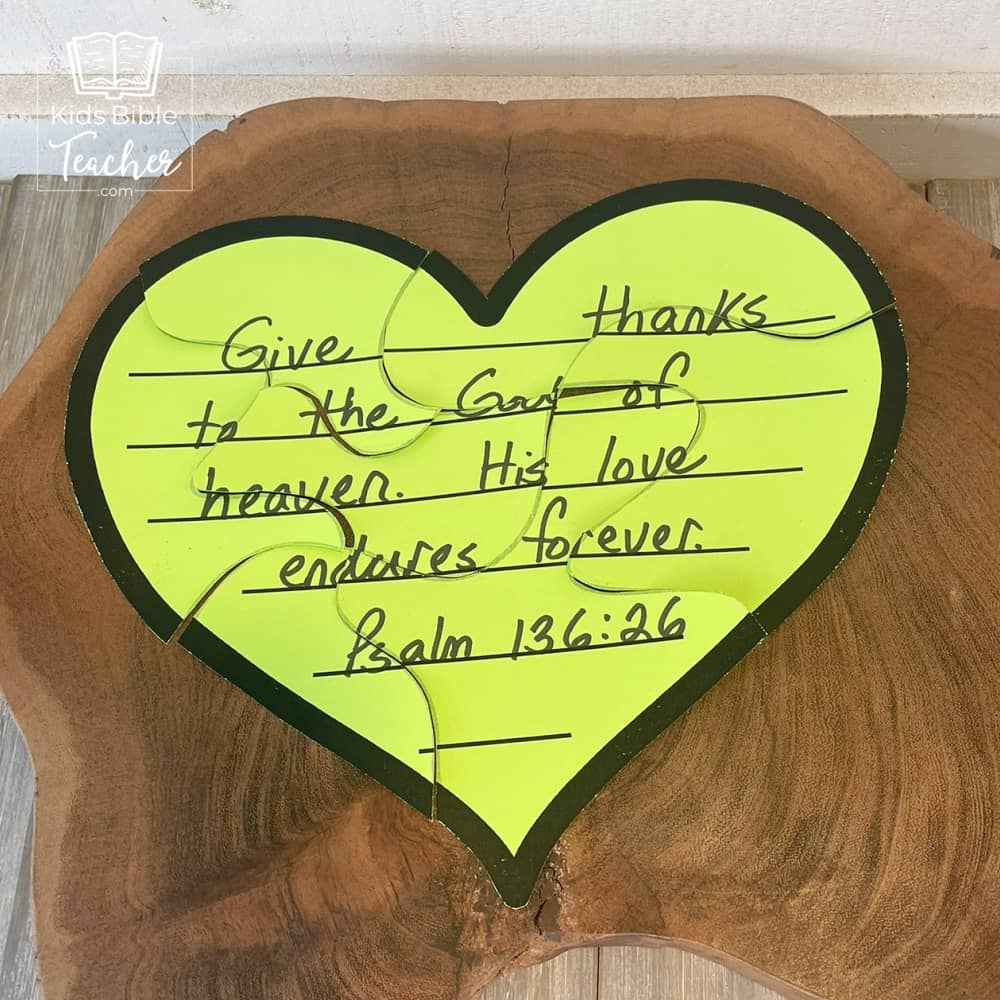 Kids Bible
Teacher
.com
Give thanks
to the God of
heaven. His love
endures forever.
Psalm 136:26